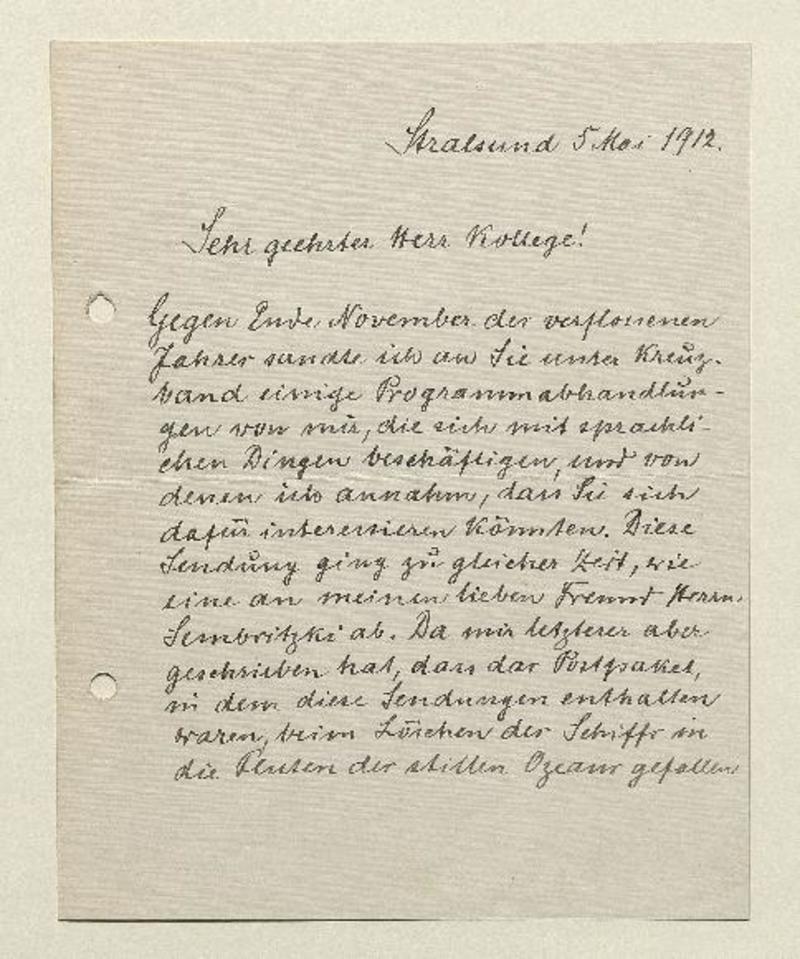 Stralsund 5 Mai 1912.
Sehr geehrter Herr Kollege!
Gegen Ende November des verflossenen
Jahres sandte ich an Sie unter Kreuz-
band einige Programmabhandlun-
gen von mir, die sich mit sprachli-
chen Dingen beschäftigen, und von
denen ich annahm, dass Sie sich
dafür interessieren könnten. Diese
Sendung ging zu gleicher Zeit, wie
eine an meinen lieben Freund Herrn
Sembritzki ab. Da mir letzterer aber
geschrieben hat, dass das Postpaket,
in dem diese Sendungen enthalten
waren, beim Löschen des Schiffs in
die Fluten des stillen Ozeans gefallen